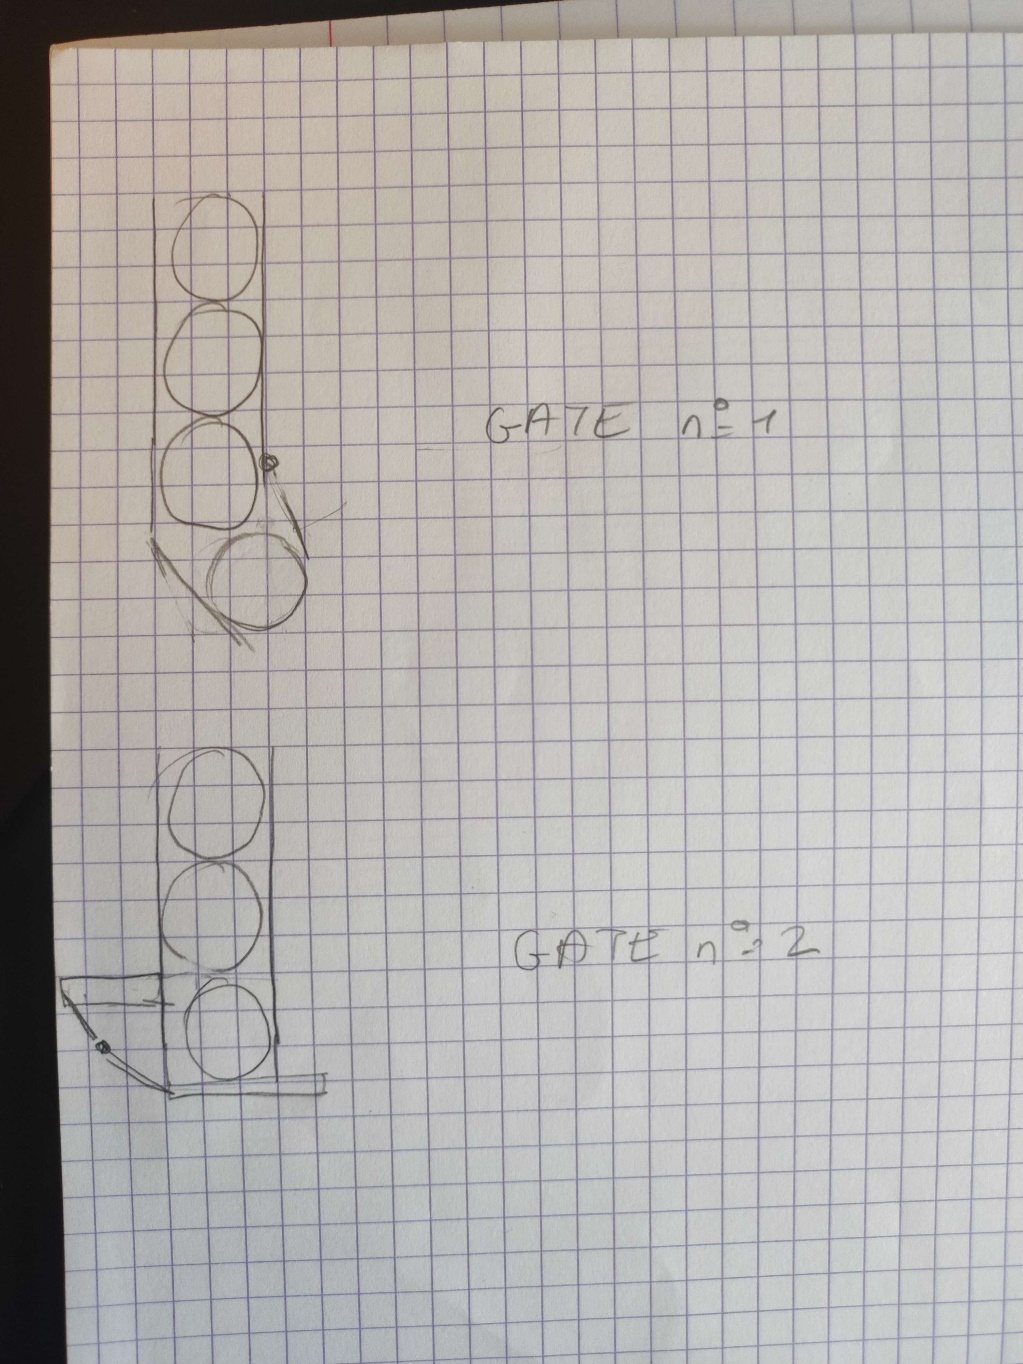 GATE n° 1
GATE n° 2